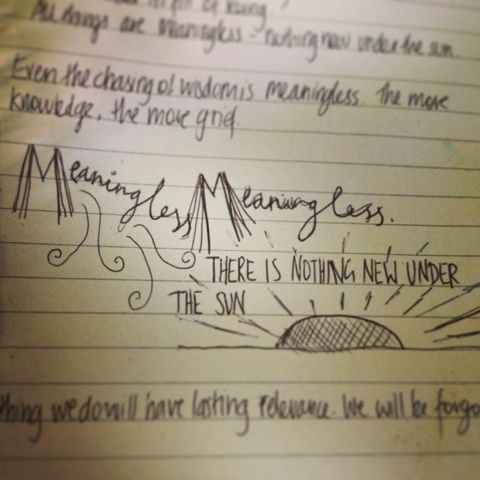 of being
All things are meaningless - nothing new under the sun.
Even the chasing of wisdom is meaningless. The more
knowledge, the more grief.
Meaningless Meaningless.
THERE IS NOTHING NEW UNDER
THE SUN
thing we do will have lasting relevance. We will be forgo